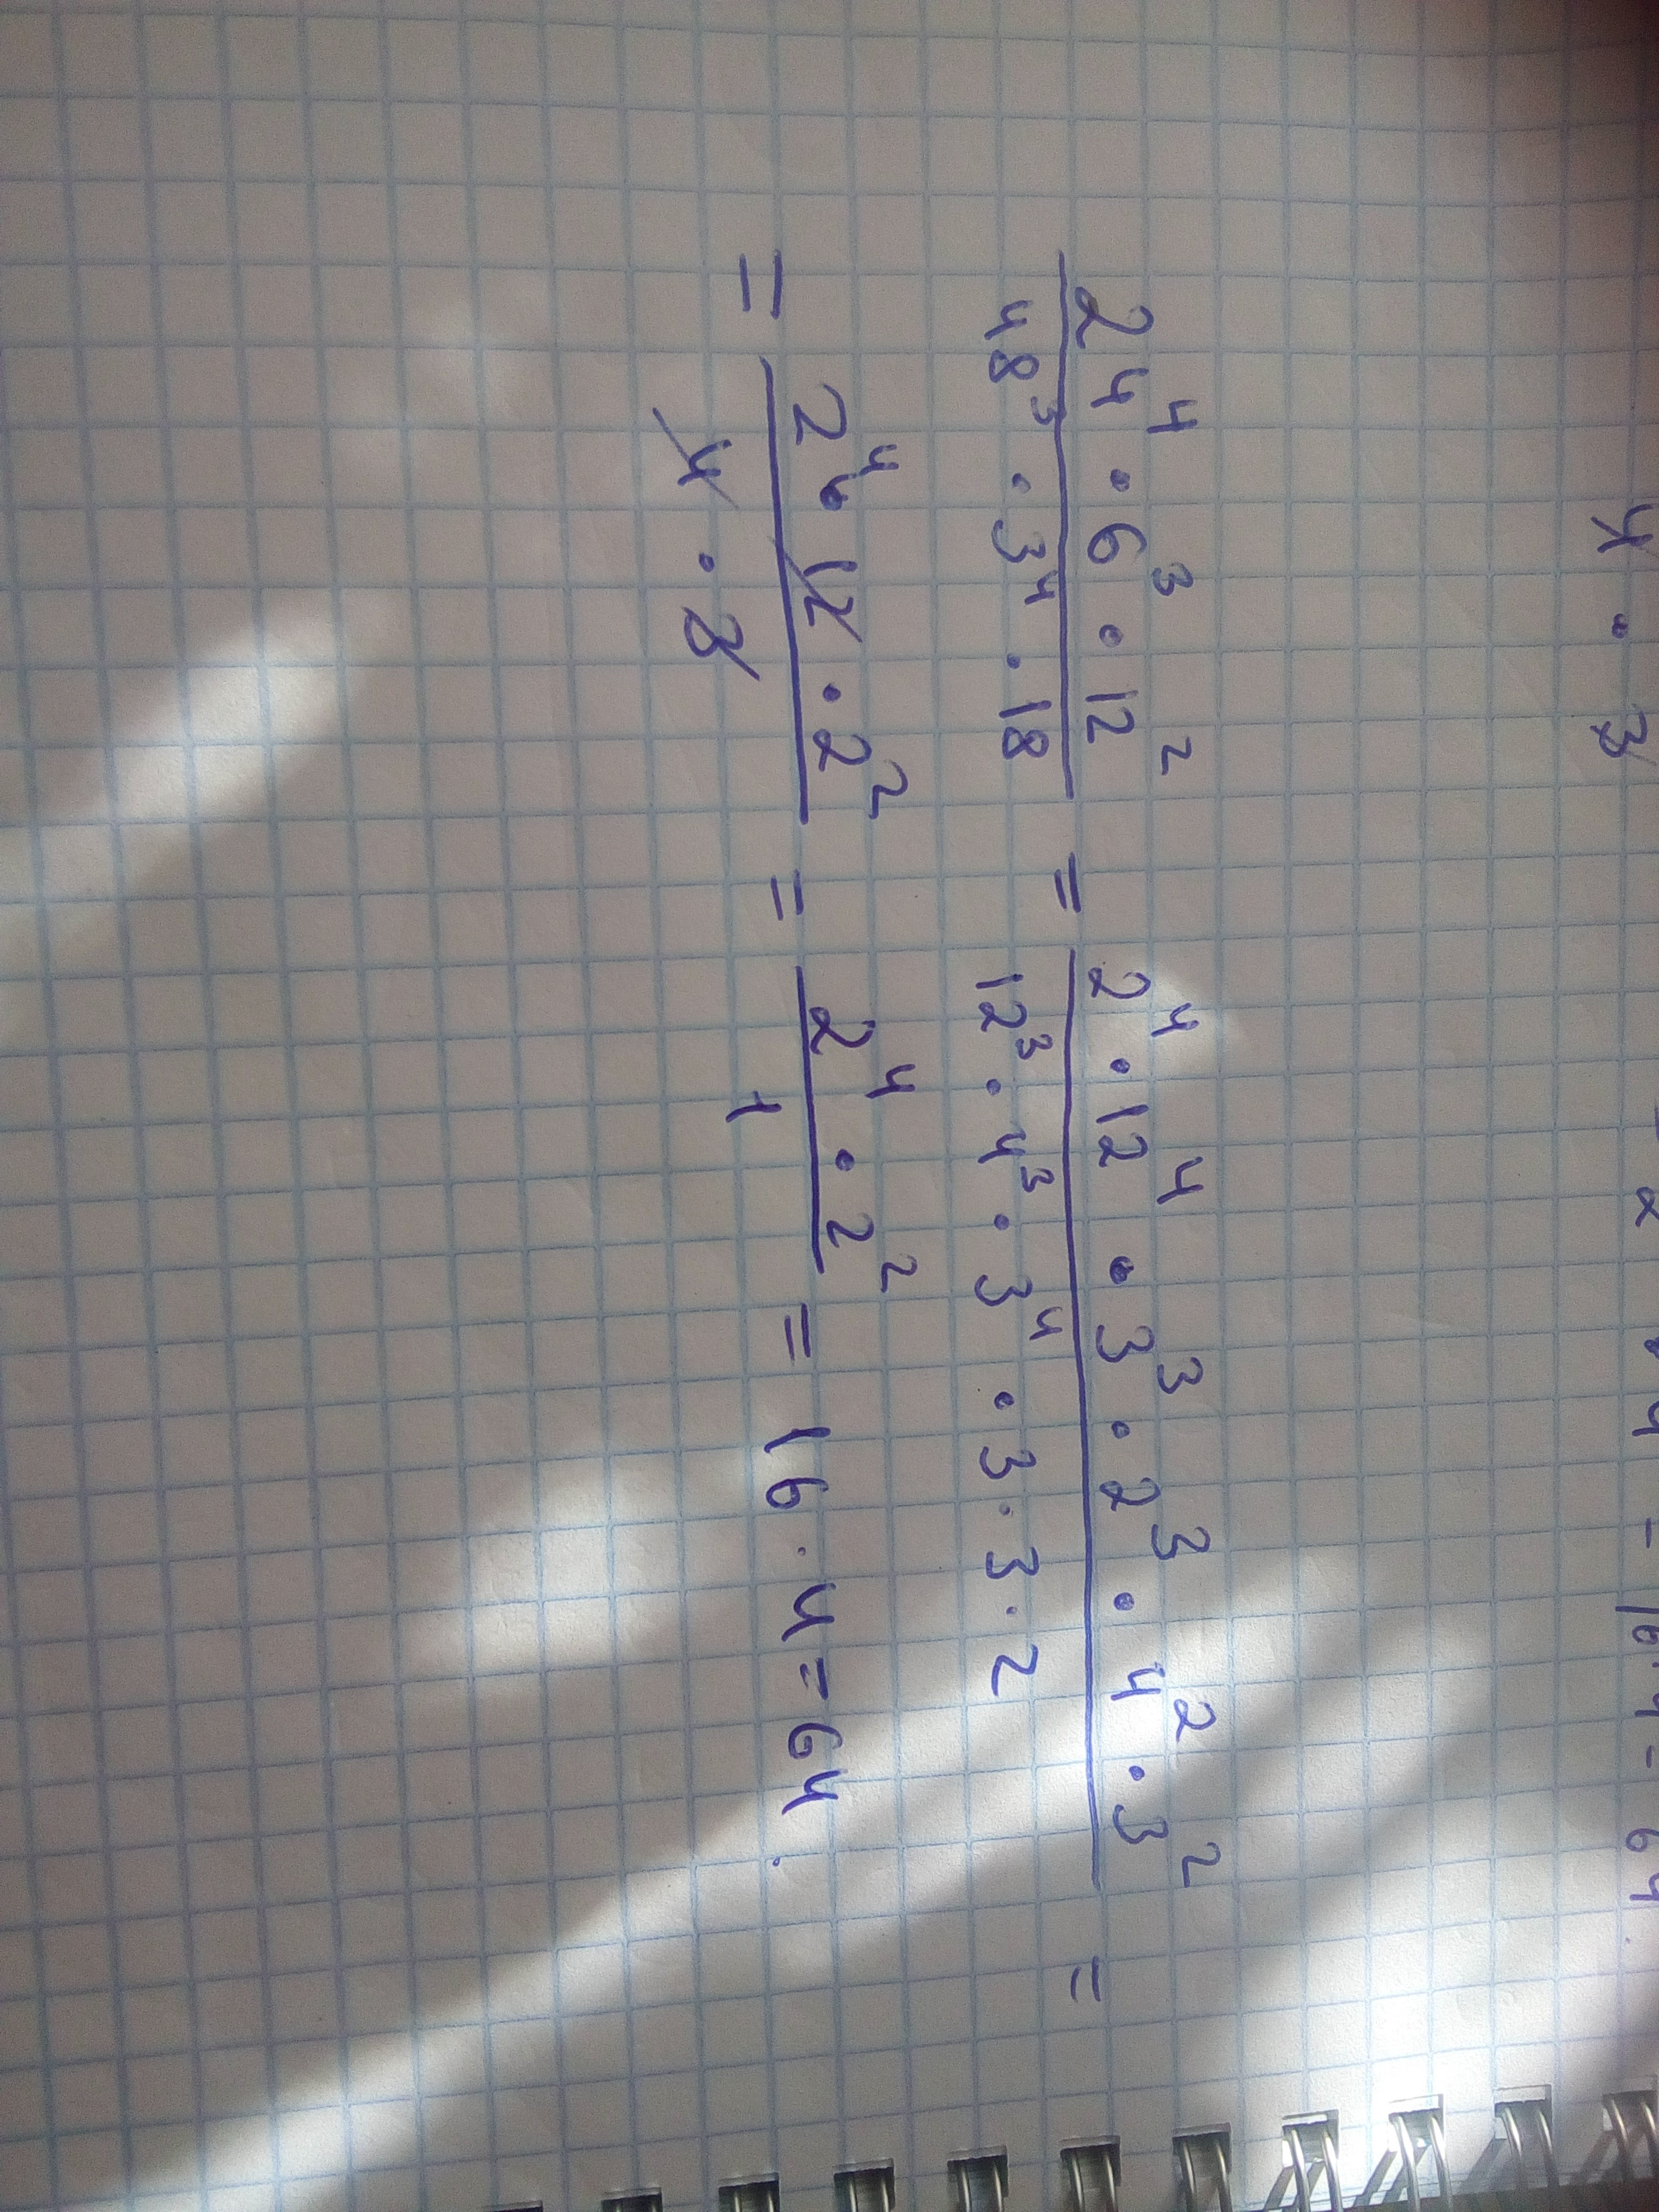 4 · 3 2 · 4 = 16 · 4 = 64
24⁴ · 6³ · 12² / 48³ · 3⁴ · 18 = 2⁴ · 12⁴ · 3³ · 2³ · 4² · 3² / 12³ · 4³ · 3⁴ · 3 · 3 · 2 =
= 2⁴ · 12 · 2² / 4 · 3 = 2⁴ · 2² / 1 = 16 · 4 = 64.